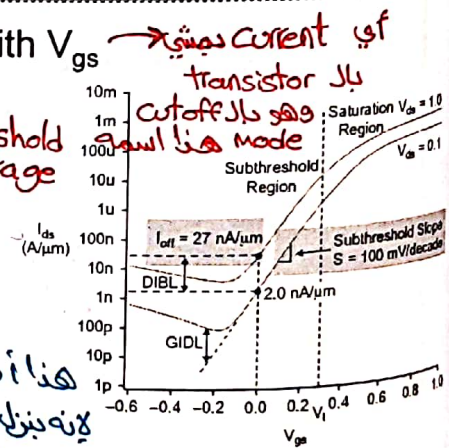 ith Vgs → أي current بمشي
بال transistor
وهو بال cutoff
shold mode هذا اسمه
age
10m
1m
100u
10u
1u
100n
10n
1n
100p
10p
1p
Ids
(A/μm)
Saturation Vds = 1.0
Region
Vds = 0.1
Subthreshold
Region
Ioff = 27 nA/μm
Subthreshold Slope
S = 100 mV/decade
DIBL
2.0 nA/μm
GIDL
−0.6 −0.4 −0.2 0.0 0.2 Vt 0.4 0.6 0.8 1.0
Vgs
هذا
لانه بنزل